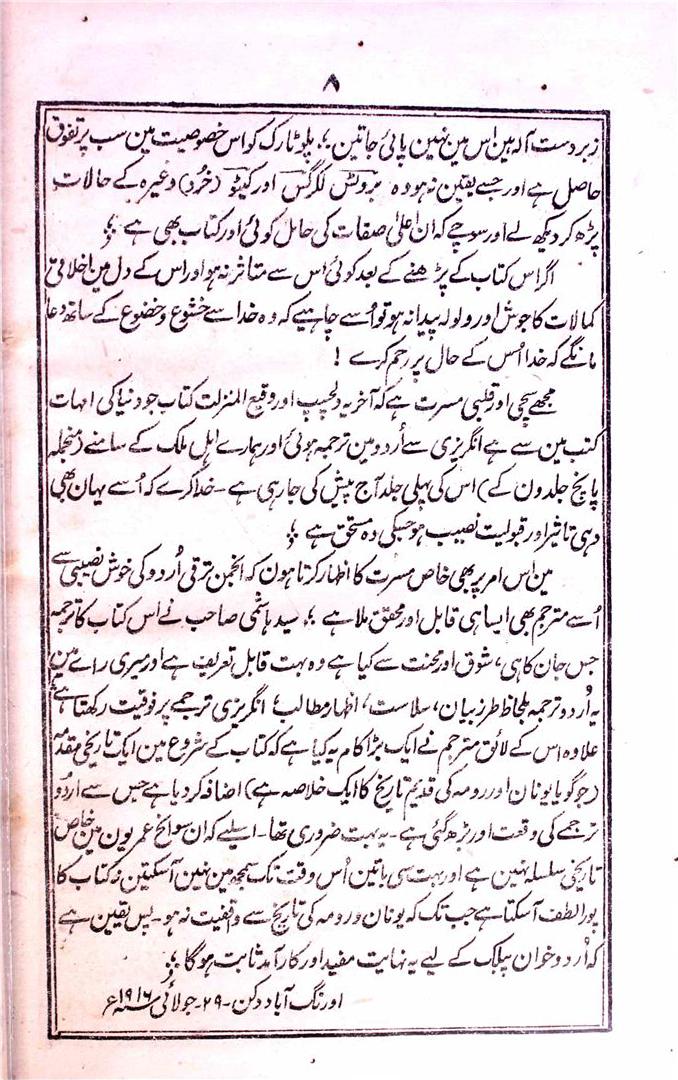 ۸
زبردست آلہ ہین اس مین نہین پائی جاتین ؛ پلوٹارک کو اس خصوصیت مین سب پر تفوق
حاصل ہے اور جسے یقین نہ ہو وہ بروٹس لکرگس اور کیٹو (خُرد) وغیرہ کے حالات
پڑھ کر دیکھ لے اور سوچے کہ ان اعلیٰ صفات کی حامل کوئی اور کتاب بھی ہے ؛
اگر اس کتاب کے پڑھنے کے بعد کوئی اس سے متاثر نہ ہو اور اس کے دل مین اخلاقی
کمالات کا جوش اور ولولہ پیدا نہ ہو تو اُسے چاہیے کہ وہ خدا سے خشوع و خضوع کے ساتھ دعا
مانگے کہ خدا اُس کے حال پر رحم کرے !
مجھے سچی اور قلبی مسرت ہے کہ آخر یہ دلچسپ اور وقیع المنزلت کتاب جو دنیا کی امہات
کتب مین سے ہے انگریزی سے اُردو مین ترجمہ ہوئی اور ہمارے اہل ملک کے سامنے (منجملہ
پانچ جلدون کے) اس کی پہلی جلد آج پیش کی جا رہی ہے - خدا کرے کہ اُسے یہان بھی
وہی تاثیر اور قبولیت نصیب ہو جسکی وہ مستحق ہے ؛
مین اس امر پر بھی خاص مسرت کا اظہار کرتا ہون کہ انجمن ترقی اُردو کی خوش نصیبی سے
اُسے مترجم بھی ایسا ہی قابل اور محقق ملا ہے ؛ سید ہاشمی صاحب نے اس کتاب کا ترجمہ
جس جان کاہی، شوق اور محنت سے کیا ہے وہ بہت قابل تعریف ہے اور میری راے مین
یہ اُردو ترجمہ بلحاظ طرز بیان، سلاست، اظہار مطالب، انگریزی ترجمے پر فوقیت رکھتا ہے؛
علاوہ اس کے لائق مترجم نے ایک بڑا کام یہ کیا ہے کہ کتاب کے شروع مین ایک تاریخی مقدمہ
(جو گویا یونان اور رومہ کی قدیم تاریخ کا ایک خلاصہ ہے) اضافہ کر دیا ہے جس سے اردو
ترجمے کی وقعت اور بڑھ گئی ہے - یہ بہت ضروری تھا - اسلیے کہ ان سوانح عمریون مین خاص
تاریخی سلسلہ نہین ہے اور بہت سی باتین اُس وقت تک سمجھ مین نہین آسکتین نہ کتاب کا
پورا لطف آسکتا ہے جب تک کہ یونان و رومہ کی تاریخ سے واقفیت نہ ہو - پس یقین ہے
کہ اُردو خوان پبلک کے لیے یہ نہایت مفید اور کارآمد ثابت ہوگا ؛
اورنگ آباد دکن - ۲۹ - جولائی سنہ ۱۹۱۶ء